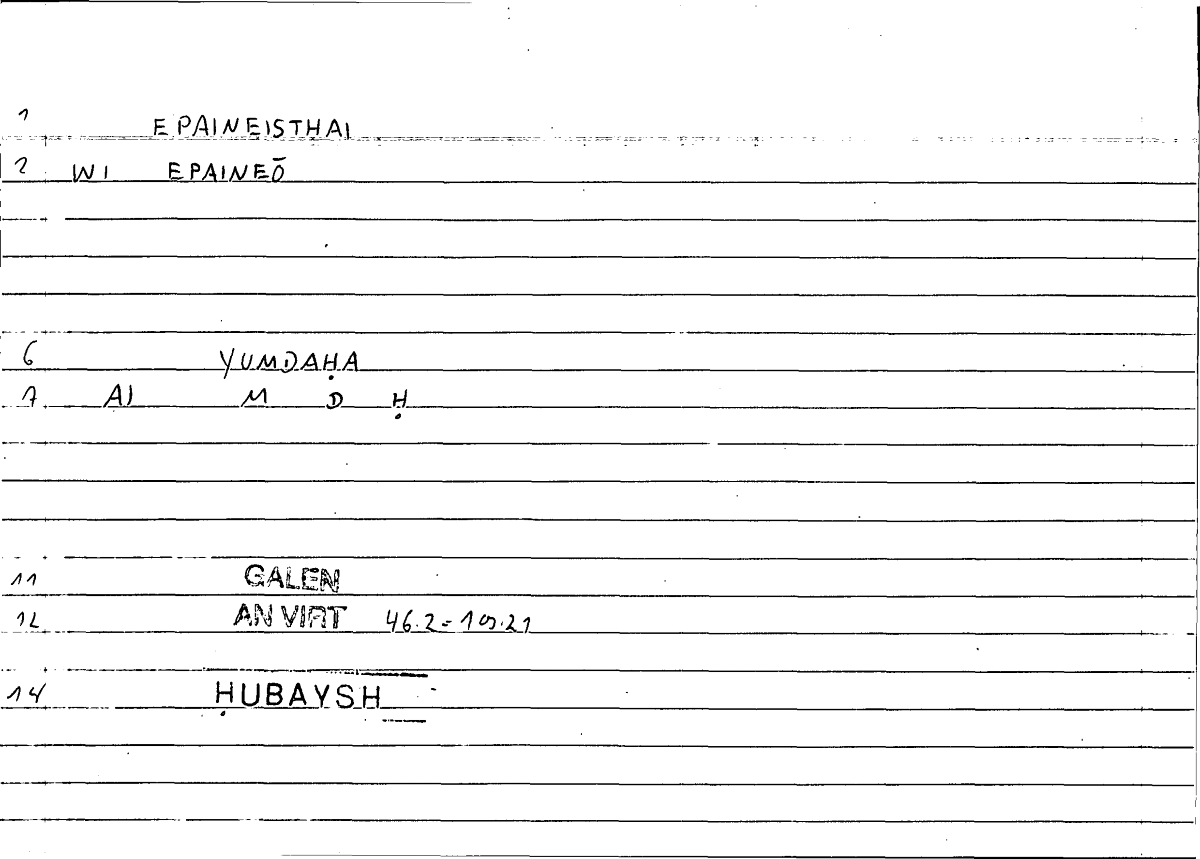 1 EPAINEISTHAI
2 WI EPAINEŌ
6 YUMDAḤA
7 AI M D Ḥ
11 GALEN
12 AN VIRT 46.2=
14 ḤUBAYSH